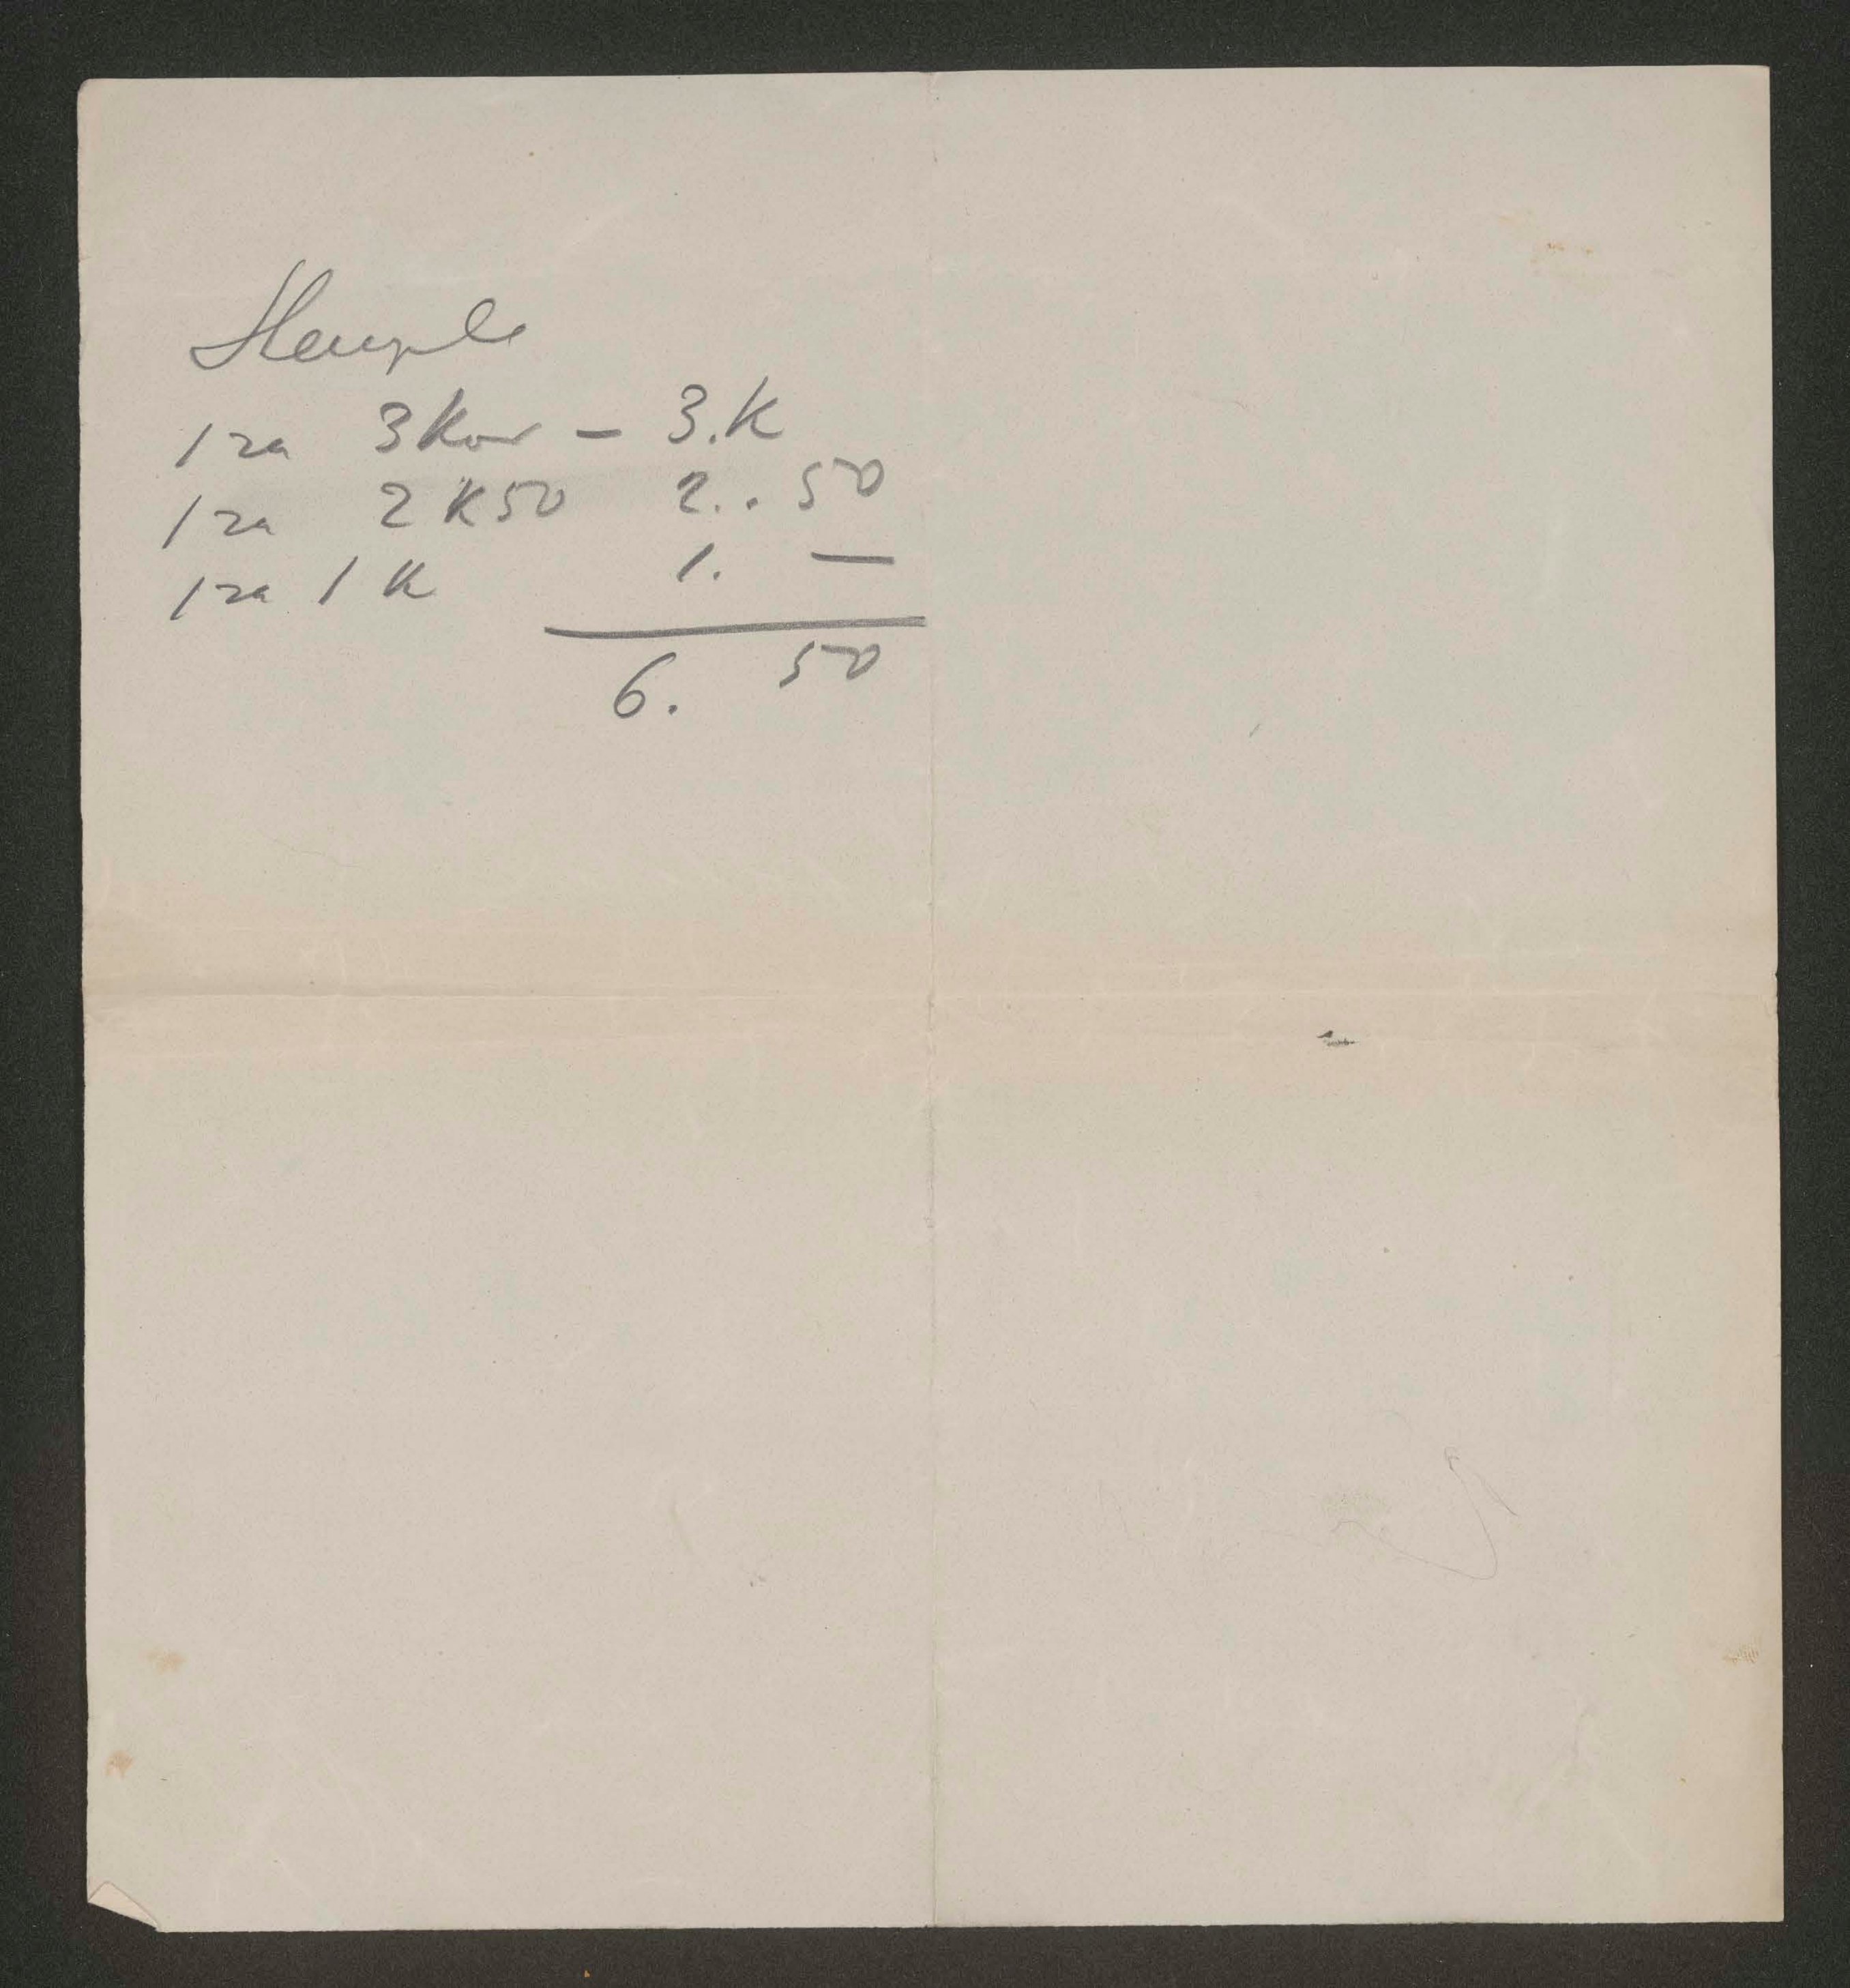 Stemple
1 za 3 Kor — 3. K
1 za 2 K 50 2. . 50
1 za 1 K 1. —
6. 50